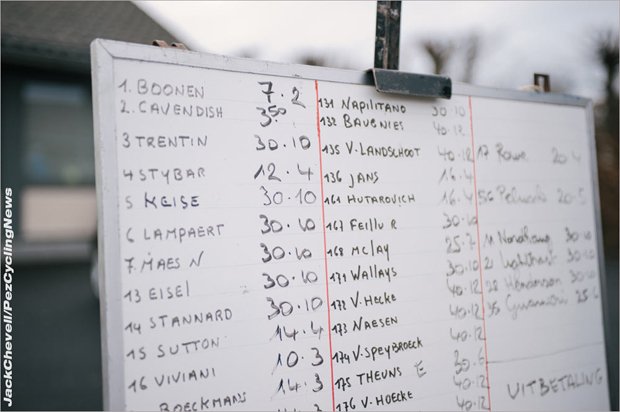 JackChevell/PezCyclingNews
1. BOONEN 7.2
2. CAVENDISH 350
3 TRENTIN 30.10
4 STYBAR 12.4
5 KEISE 30.10
6 LAMPAERT 30.10
7 MAES N 30.10
13 EISEL 30.10
14 STANNARD 14.4
15 SUTTON 10.3
16 VIVIANI 14.3
BOECKMANS
131 NAPILITANO 30.10
132 BAUGNIES 40.12
135 V-LANDSCHOOT 40.12
136 JANS 16.4
161 HUTAROVICH 16.4
167 Feillu R 30.10
168 mclay 25.7
171 Wallays 30.10
172 V.Hecke 40.12
173 NAESEN 40.12
174 V-SPEYBROECK 30.6
175 THEUNS E 40.12
176 V.HOECKE 40.12
17 Rowe 20.4
20.5
30.10
21 30.10
28 Henderson 30.10
25.6
UITBETALING